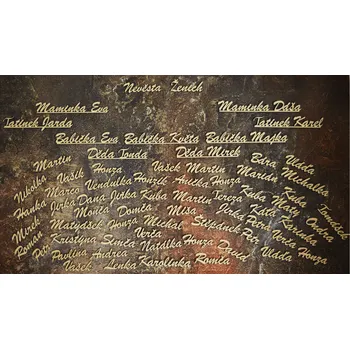 Nevěsta Ženich
Maminka Eva Maminka Dáša
Tatínek Jarda Tatínek Karel
Babička Eva Babička Květa Babička Majka
Děda Tonda Děda Mirek
Martin Vašík Honza Vašek Martin Bára Vlaďa
Nikolka Marco Vendulka Honzík Anička Honza Marián Michalka
Hanka Jirka Dana Jirka Kuba Martin Tereza Kuba Kuba Tomášek
Mirek Monča Domča Míša Jirka Kata Maty Ondra
Roman Matyášek Honza Michal Štěpánek Petra Karina
Petr Kristýna Simča Verča Honza Petr Verča Honza
Pavlína Andrea Natálka David Vlaďa
Vašek Lenka Karolínka Romča